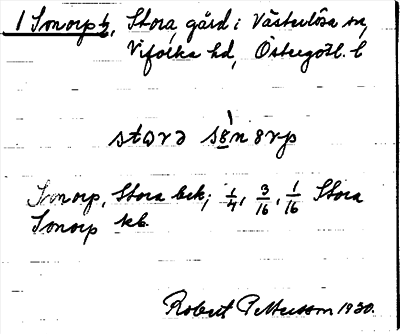 1 Sonorp ½, Stora, gård i Västerlösa sn,
Vifolka hd, Östergötl. l
Sonorp, Stora bek; ¼, 3/16, 1/16 Stora
Sonorp kb.
Robert Pettersson 1930.